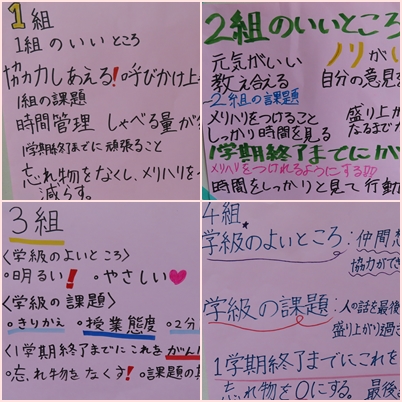 1組
1組のいいところ
協力しあえる!呼びかけ上
1組の課題
時間管理 しゃべる量が
1学期終了までに頑張ること
忘れ物をなくし、メリハリを
減らす。
2組のいいところ
元気がいい ノリがい
教え合える 自分の意見を
2組の課題
メリハリをつけること 盛り上が
しっかり時間を見る たるまでが
1学期終了までに
メリハリをつけれるようにする
時間をしっかりと見て行動
3組
〈学級のよいところ〉
・明るい! ・やさしい♥
〈学級の課題〉
・きりかえ ・授業態度 ・2分
〈1学期終了までにこれをがん
・忘れ物をなくす! ・課題の
4組
学級のよいところ:仲間
協力ができ
学級の課題:人の話を最後
盛り上がり過ぎ
1学期終了までにこれを
忘れ物を0にする。最後